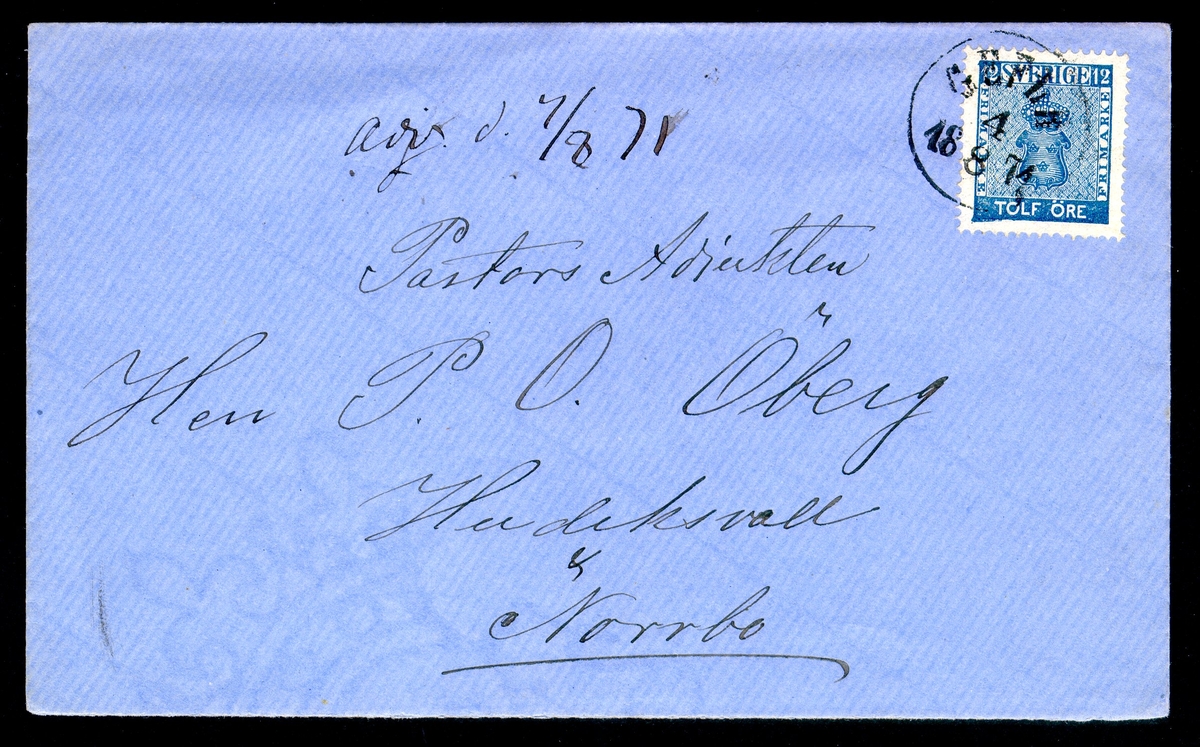 SVERIGE 12
FRIMARKE
FRIMARKE
TOLF ÖRE
4
18
8 71
d. 7/8 71
Pastors Adjunkten
Herr P. O. Öberg
Hudiksvall
&
Norrbo